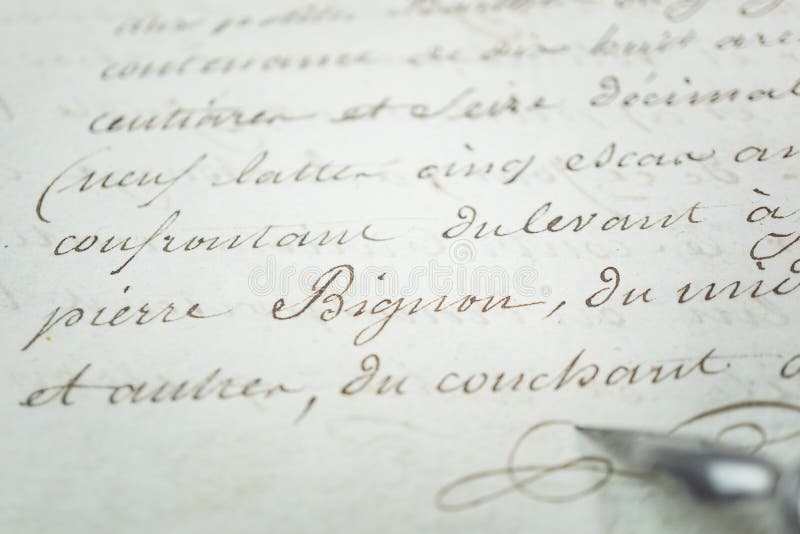 contenance de dix huit are
centiares et seize décimal
(neuf lattes cinq escax an
confrontant du levant à
pierre Bignon, du mid
et autres, du couchant a